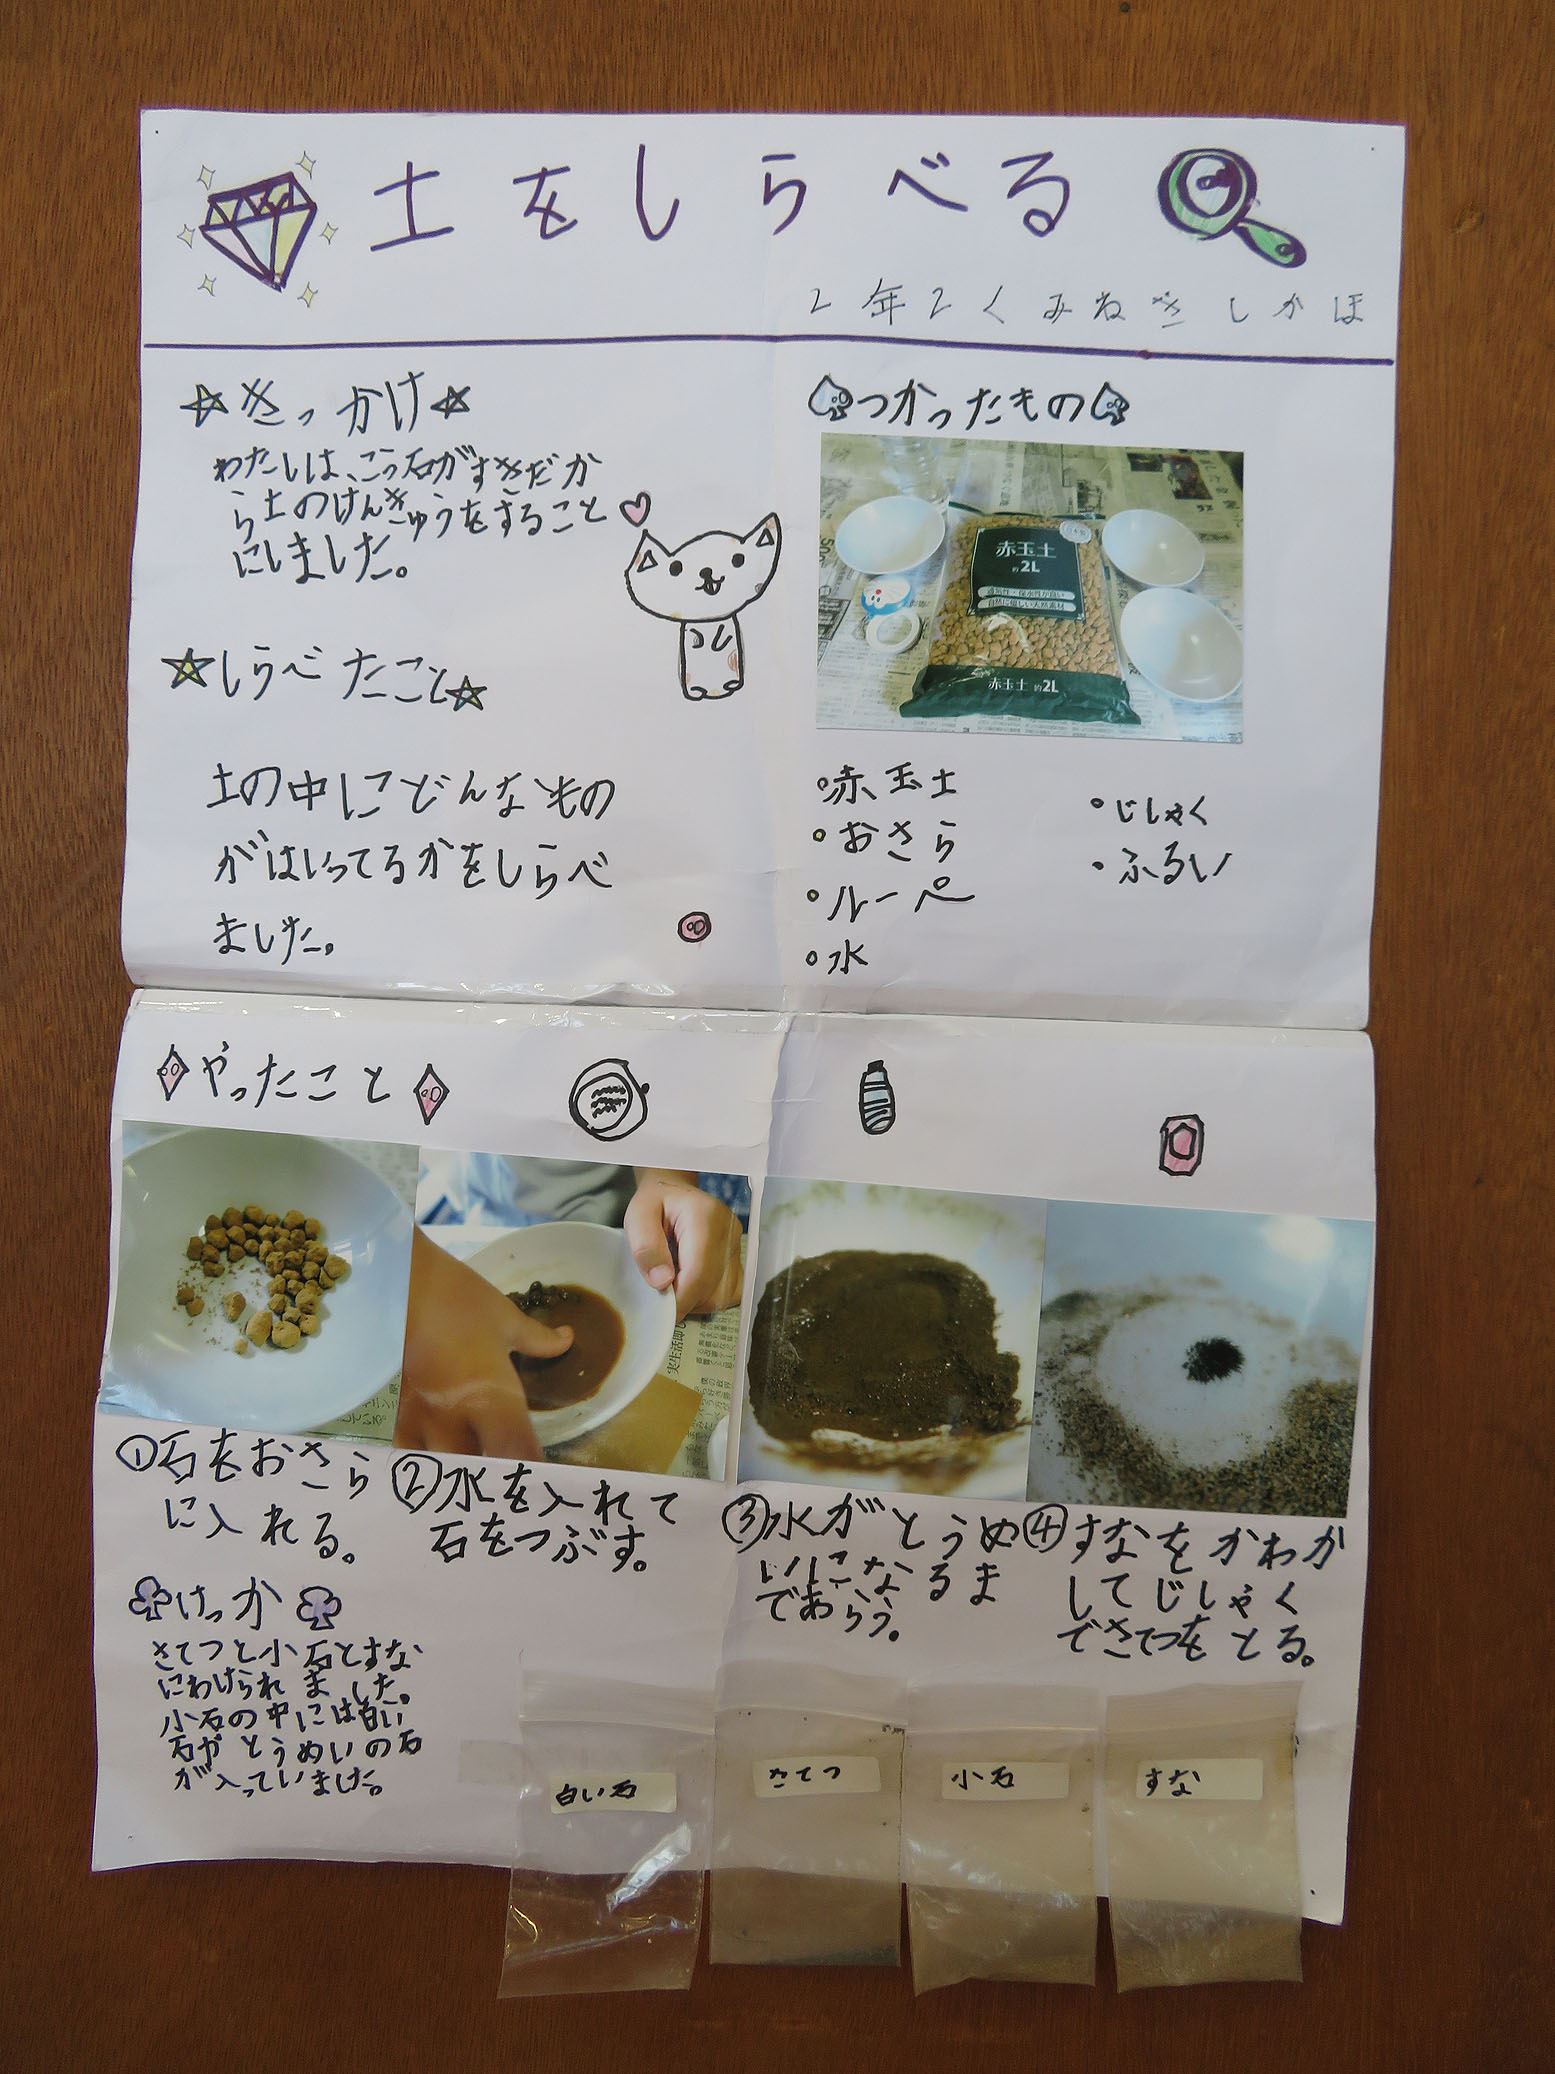 土をしらべる
2年2くみねぎしかほ
きっかけ
わたしは、こう石がすきだか
ら土のけんきゅうをすること
にしました。
しらべたこと
土の中にどんなもの
がはいってるかをしらべ
ました。
つかったもの
赤玉土
約2L
通気性・保水性が良い
自然に優しい天然素材
赤玉土 約2L
・赤玉土
・おさら
・ルーペ
・水
・じしゃく
・ふるい
やったこと
①石をおさら
に入れる。
②水を入れて
石をつぶす。
③水がとうめ
いになるま
であらう。
④すなをかわか
してじしゃく
でさてつをとる。
けっか
さてつと小石とすな
にわけられました。
小石の中には白い
石がとうめいの石
が入っていました。
白い石
さてつ
小石
すな